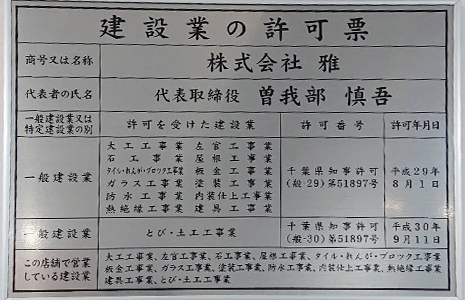 建設業の許可票
商号又は名称 株式会社 雅
代表者の氏名 代表取締役 曽我部 慎吾
一般建設業又は
特定建設業の別 許可を受けた建設業 許可番号 許可年月日
一般建設業
大工工事業 左官工事業
石工事業 屋根工事業
タイル・れんが・ブロック工事業 板金工事業
ガラス工事業 塗装工事業
防水工事業 内装仕上工事業
熱絶縁工事業 建具工事業
千葉県知事許可
(般-29)第51897号
平成29年
8月1日
一般建設業 とび・土工工事業
千葉県知事許可
(般-30)第51897号
平成30年
9月11日
この店舗で営業
している建設業
大工工事業、左官工事業、石工事業、屋根工事業、タイル・れんが・ブロック工事業
板金工事業、ガラス工事業、塗装工事業、防水工事業、内装仕上工事業、熱絶縁工事業
建具工事業、とび・土工工事業